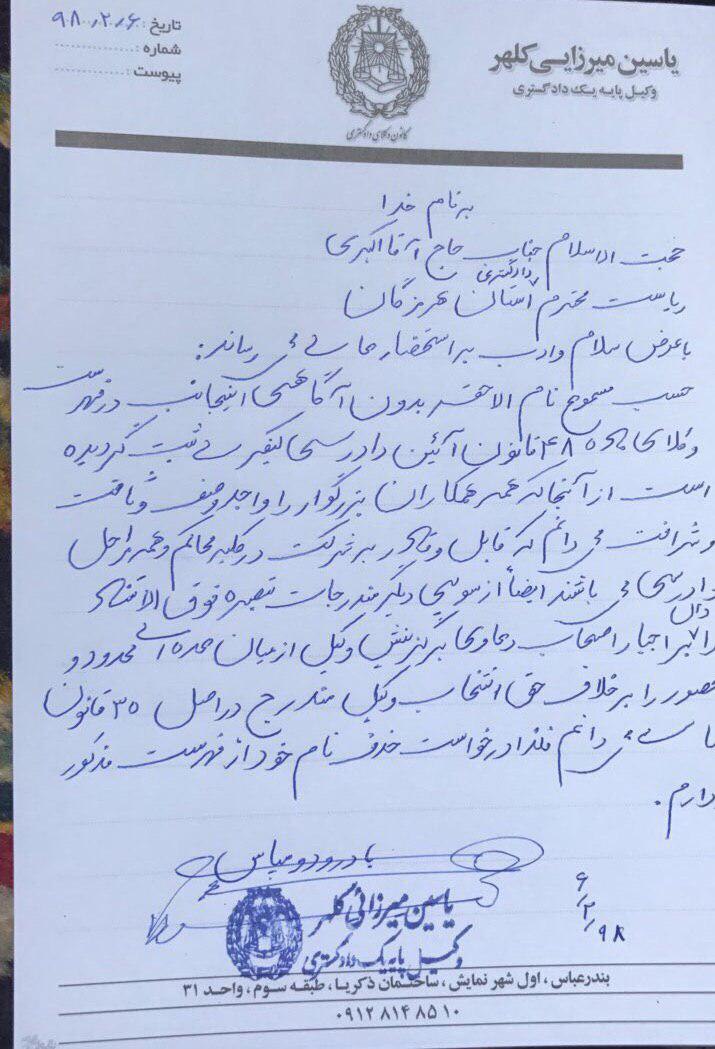 یاسین میرزایی کلهر
وکیل پایه یک دادگستری
کانون وکلای دادگستری
تاریخ : ۹۸/۲/۶
شماره :
پیوست :
به نام خدا
حجت الاسلام جناب حاج آقا اکبری
ریاست محترم دادگستری استان هرمزگان
با عرض سلام و ادب به استحضار عالی می رساند:
حسب مسموع نام الاحقر بدون آگاهی اینجانب در فهرست
وکلای ماده ۴۸ قانون آئین دادرسی کیفری ثبت گردیده
است از آنجا که همه همکاران بزرگوار را واجد وصف وثاقت
و شرافت می دانم که قابل و قادر به شرکت در کلیه محاکم و همه مراحل
دادرسی می باشند ایضاً از سویی دیگر مندرجات تبصره فوق الاقتضاء
دال بر اجبار اصحاب دعاوی بر گزینش وکیل از میان عده ای محدود و
محصور را بر خلاف حق انتخاب وکیل مندرج در اصل ۳۵ قانون
اساسی می دانم فلذا درخواست حذف نام خود از فهرست مذکور
دارم.
با درود و سپاس
یاسین میرزائی کلهر
وکیل پایه یک دادگستری
۶/۲/۹۸
بندرعباس ، اول شهر نمایش ، ساختمان ذکریا ، طبقه سوم ، واحد ۳۱
۰۹۱۲ ۸۱۴ ۸۵ ۱۰